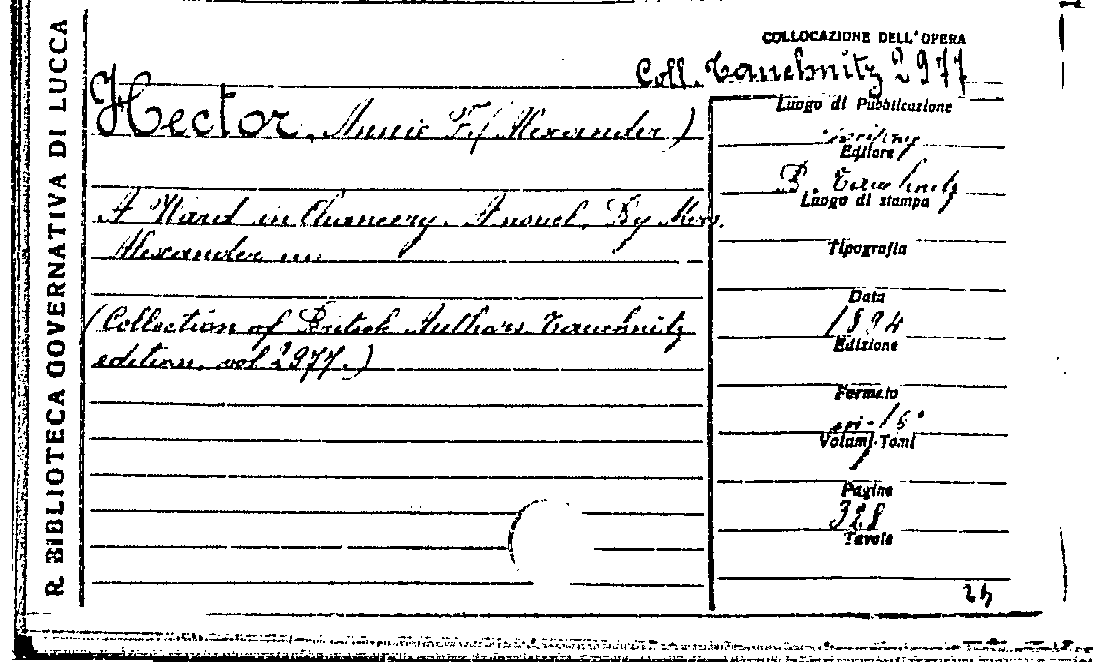 R. BIBLIOTECA GOVERNATIVA DI LUCCA
COLLOCAZIONE DELL'OPERA
Coll. Tauchnitz 2977
Hector, Annie F. (Alexander)
A Ward in Chancery. A novel. By Mrs.
Alexander
(Collection of British Authors Tauchnitz
edition. vol 2977.)
Luogo di Pubblicazione
Editore
B. Tauchnitz
Luogo di stampa
Tipografia
Data
1894
Edizione
Formato
16°
Volumi-Tomi
1
Pagine
328
Tavole
24